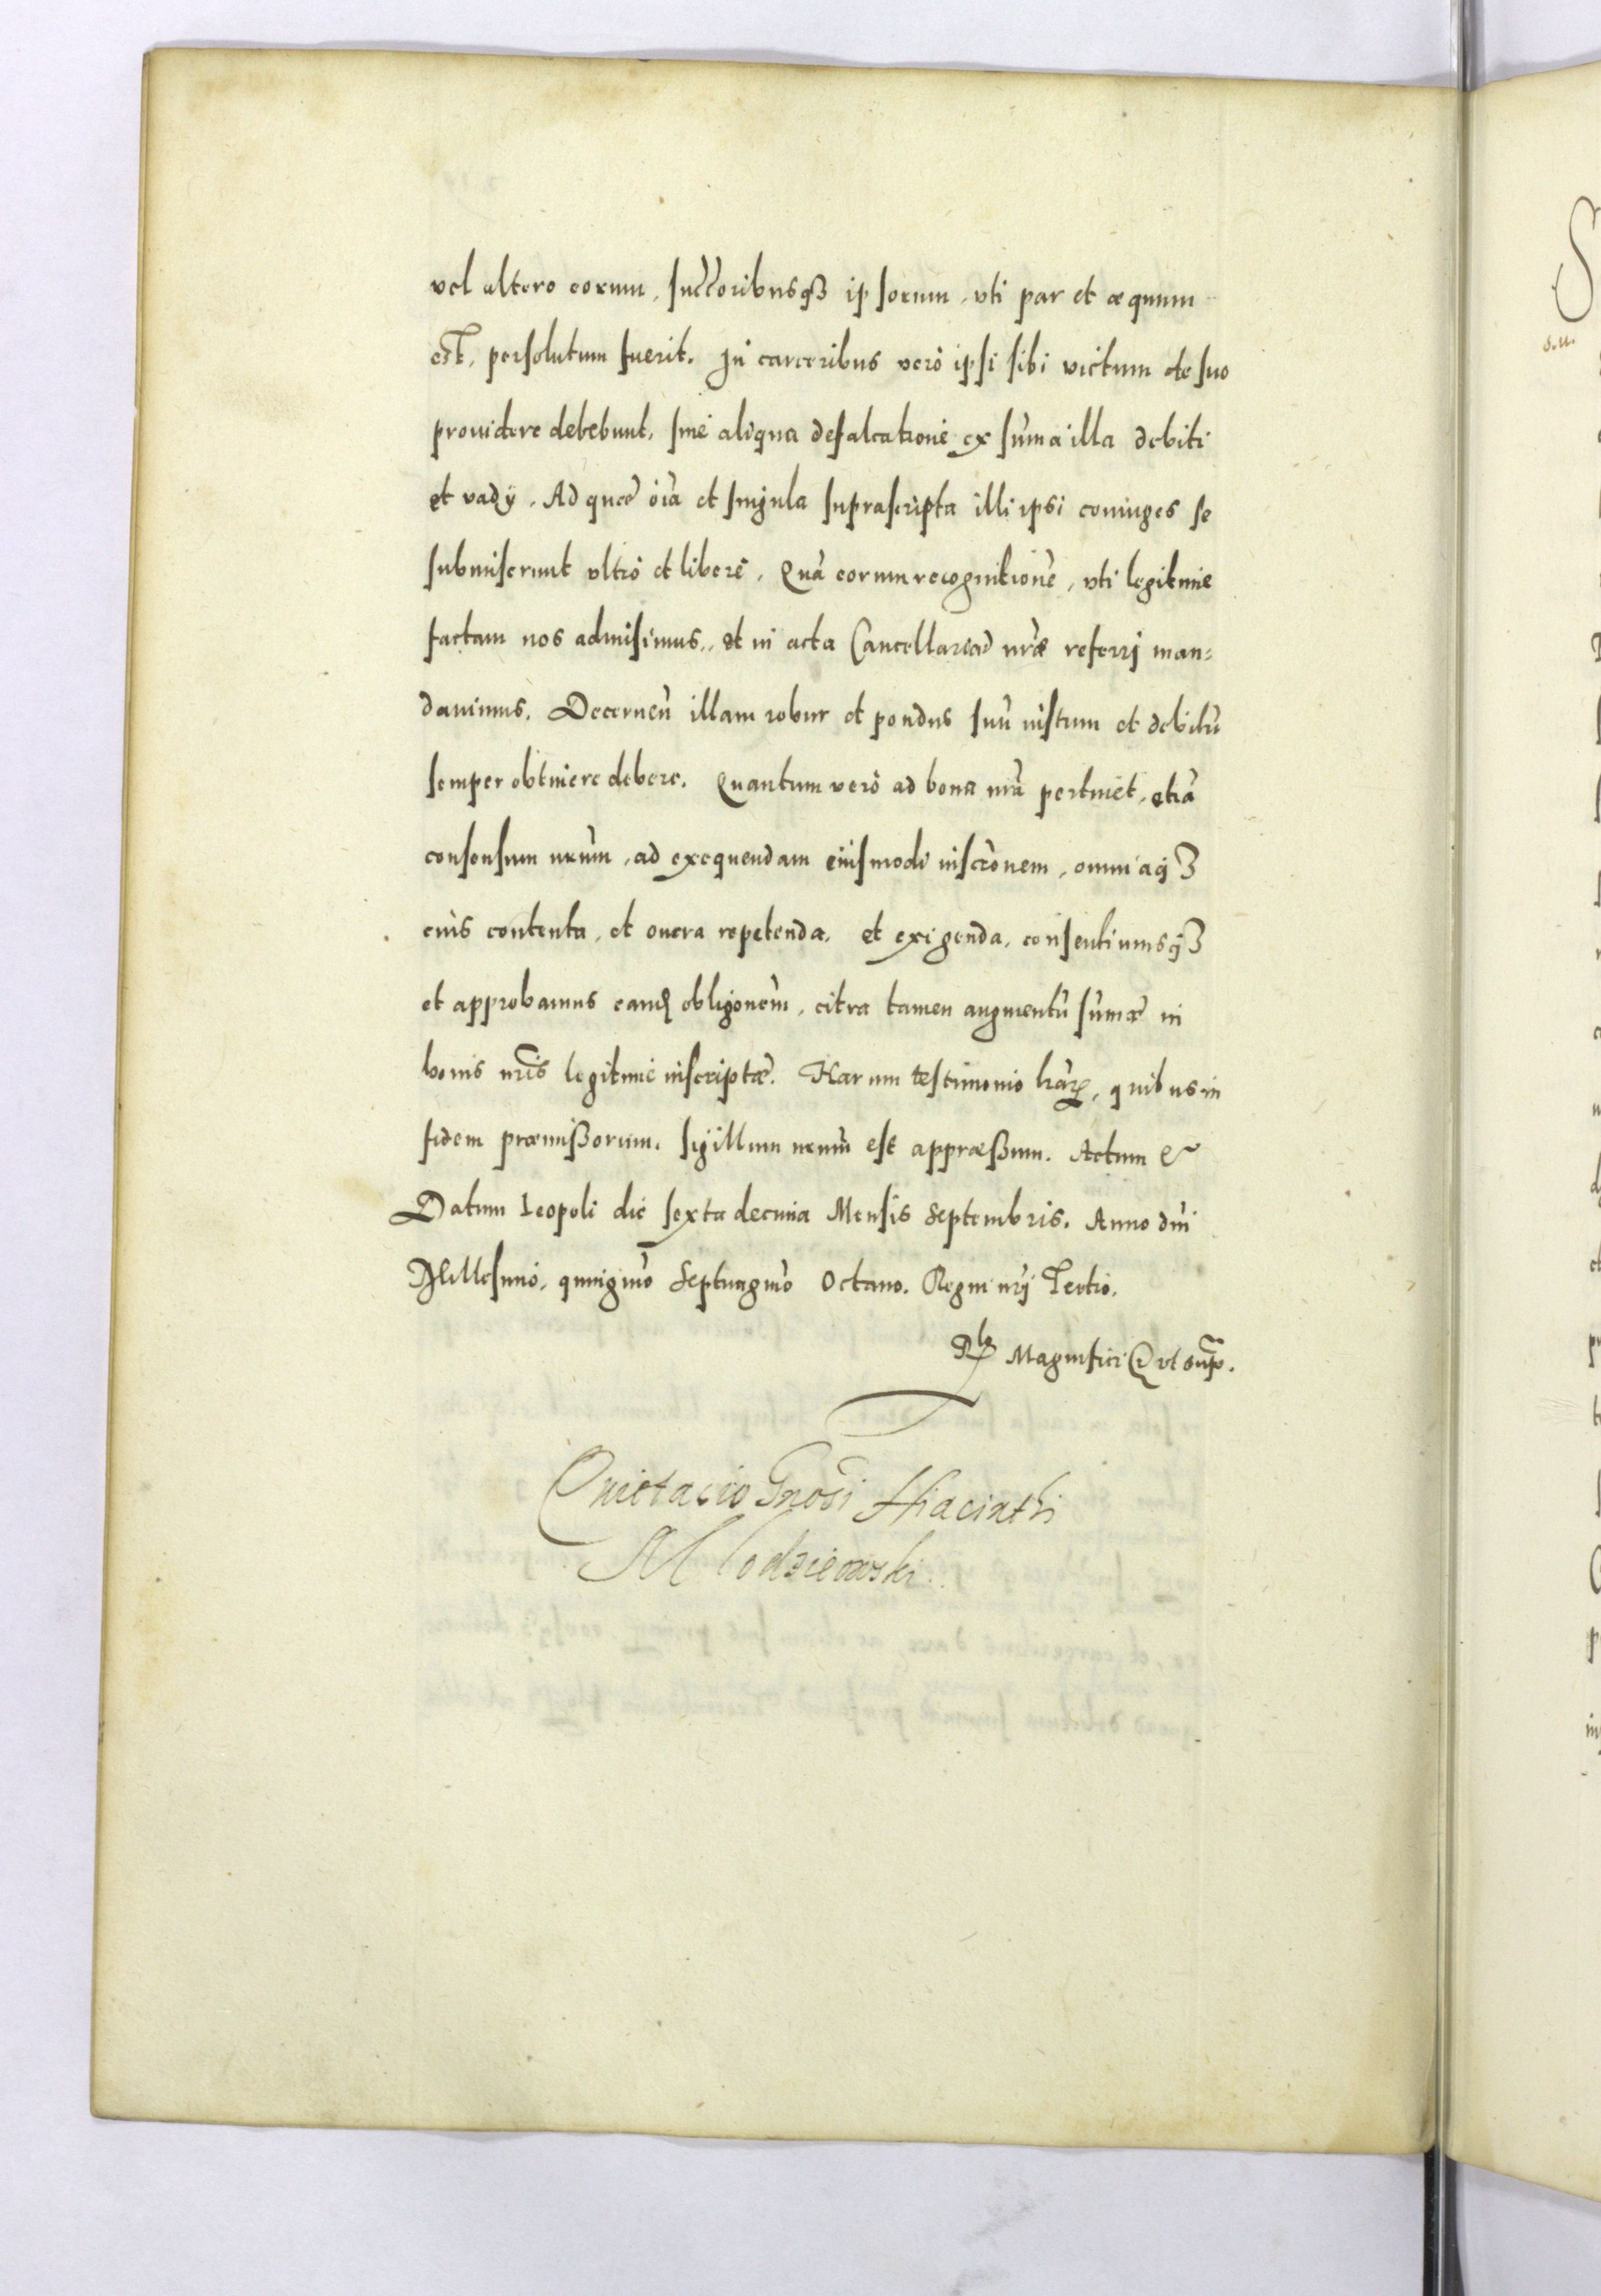 vel altero eorum, succ̃oribusqȝ ipsorum, vti par et æquum
est, persolutum fuerit. In carceribus verò ipsi sibi victum de suo
prouidere debebunt, sine aliqua defalcatione ex sum̃a illa debiti
et vadÿ. Ad quæ oĩa et singula suprascripta illi ipsi coniuges se
submiserunt vltrò et liberè. Quã eorum recognitionẽ, vti legitimè
factam nos admisimus, et in acta Cancellariæ nræ̃ referrj man=
dauimus. Decernen̄ illam robur et pondus suũ iustum et debitũ
semper obtinere debere. Quantum verò ad bona nrã pertinet, etiã
consensum nrũm, ad exequendam eiusmodi inscrõnem, omniaqȝ
eius contenta, et onera repetenda, et exigenda, consentimusqȝ
et approbamus eand obligõnem, citra tamen augmentũ sum̃æ in
bonis nrĩs legitimè inscriptæ. Harum testimonio lrãrꝝ, quibus in
fidem præmißorum, sigillum nrũm est appræßum. Actum &
Datum Leopoli die sexta decima Mensis Septembris. Anno dnĩ
Millesimo, quingmõ Septuagmõ Octauo. Regni nrĩ Tertio.
Magnifici vt supᷓ.
Quietacio Gnõsi Hiacinthi
Mlodzieowski
s.n.